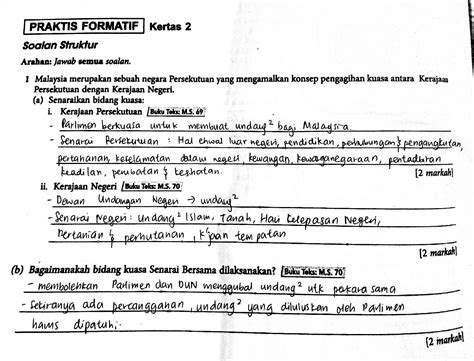 PRAKTIS FORMATIF Kertas 2
Soalan Struktur
Arahan: Jawab semua soalan.
1 Malaysia merupakan sebuah negara Persekutuan yang mengamalkan konsep pengagihan kuasa antara Kerajaan
Persekutuan dengan Kerajaan Negeri.
(a) Senaraikan bidang kuasa:
i. Kerajaan Persekutuan Buku Teks: M.S. 69
- Parlimen berkuasa untuk membuat undang² bagi Malaysia.
- Senarai Persekutuan : Hal ehwal luar negeri, pendidikan, perhubungan & pengangkutan,
pertahanan, keselamatan dalam negeri, kewangan, kewarganegaraan, pentadbiran
keadilan, perubatan & kesihatan.
[2 markah]
ii. Kerajaan Negeri Buku Teks: M.S. 70
- Dewan Undangan Negeri → undang²
- Senarai Negeri : undang² Islam, Tanah, Hari Kelepasan Negeri,
Pertanian & perhutanan, K'jaan tempatan
[2 markah]
(b) Bagaimanakah bidang kuasa Senarai Bersama dilaksanakan? Buku Teks: M.S. 70
- membolehkan Parlimen dan DUN menggubal undang² utk perkara sama
- Sekiranya ada percanggahan, undang² yang diluluskan oleh Parlimen
harus dipatuhi.
[2 markah]